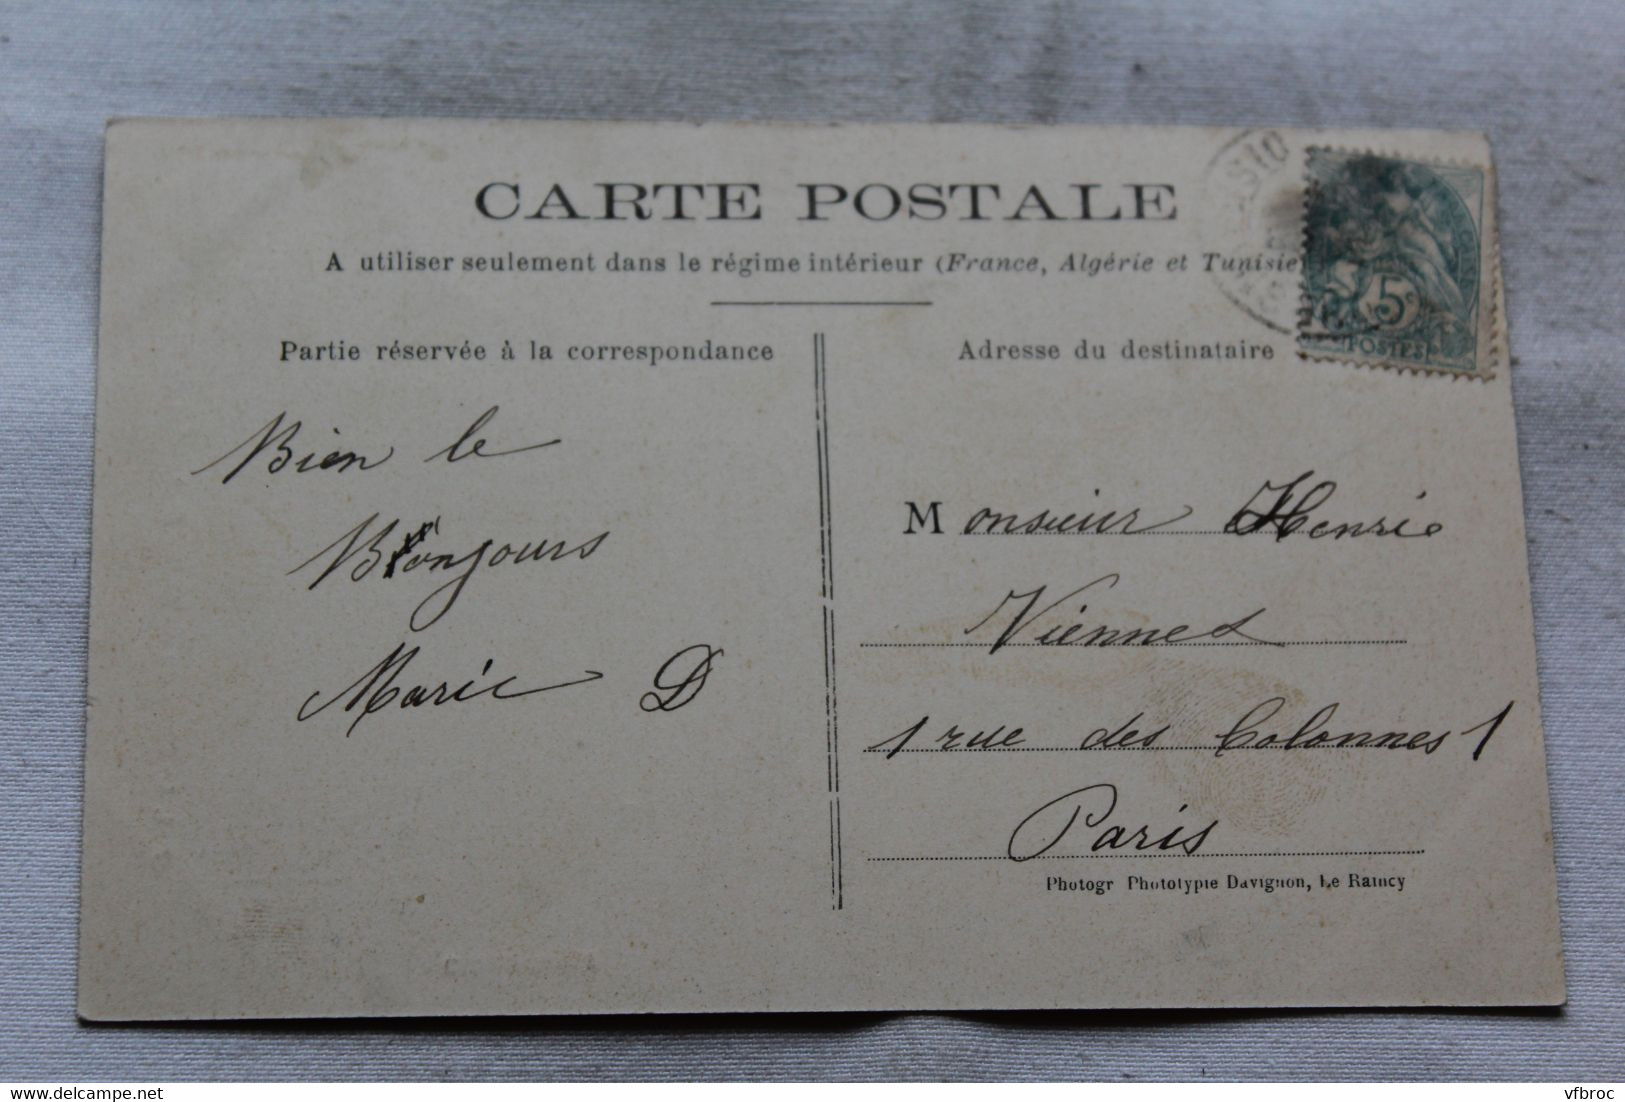 CARTE POSTALE
A utiliser seulement dans le régime intérieur (France, Algérie et Tunisie)
5c
POSTES
Partie réservée à la correspondance
Adresse du destinataire
Bien le
Bonjours
Marie D
Monsieur Henrie
Viennet
1 rue des Colonnes 1
Paris
Photogr Phototypie Davignon, Le Raincy
delcampe.net
vfbroc